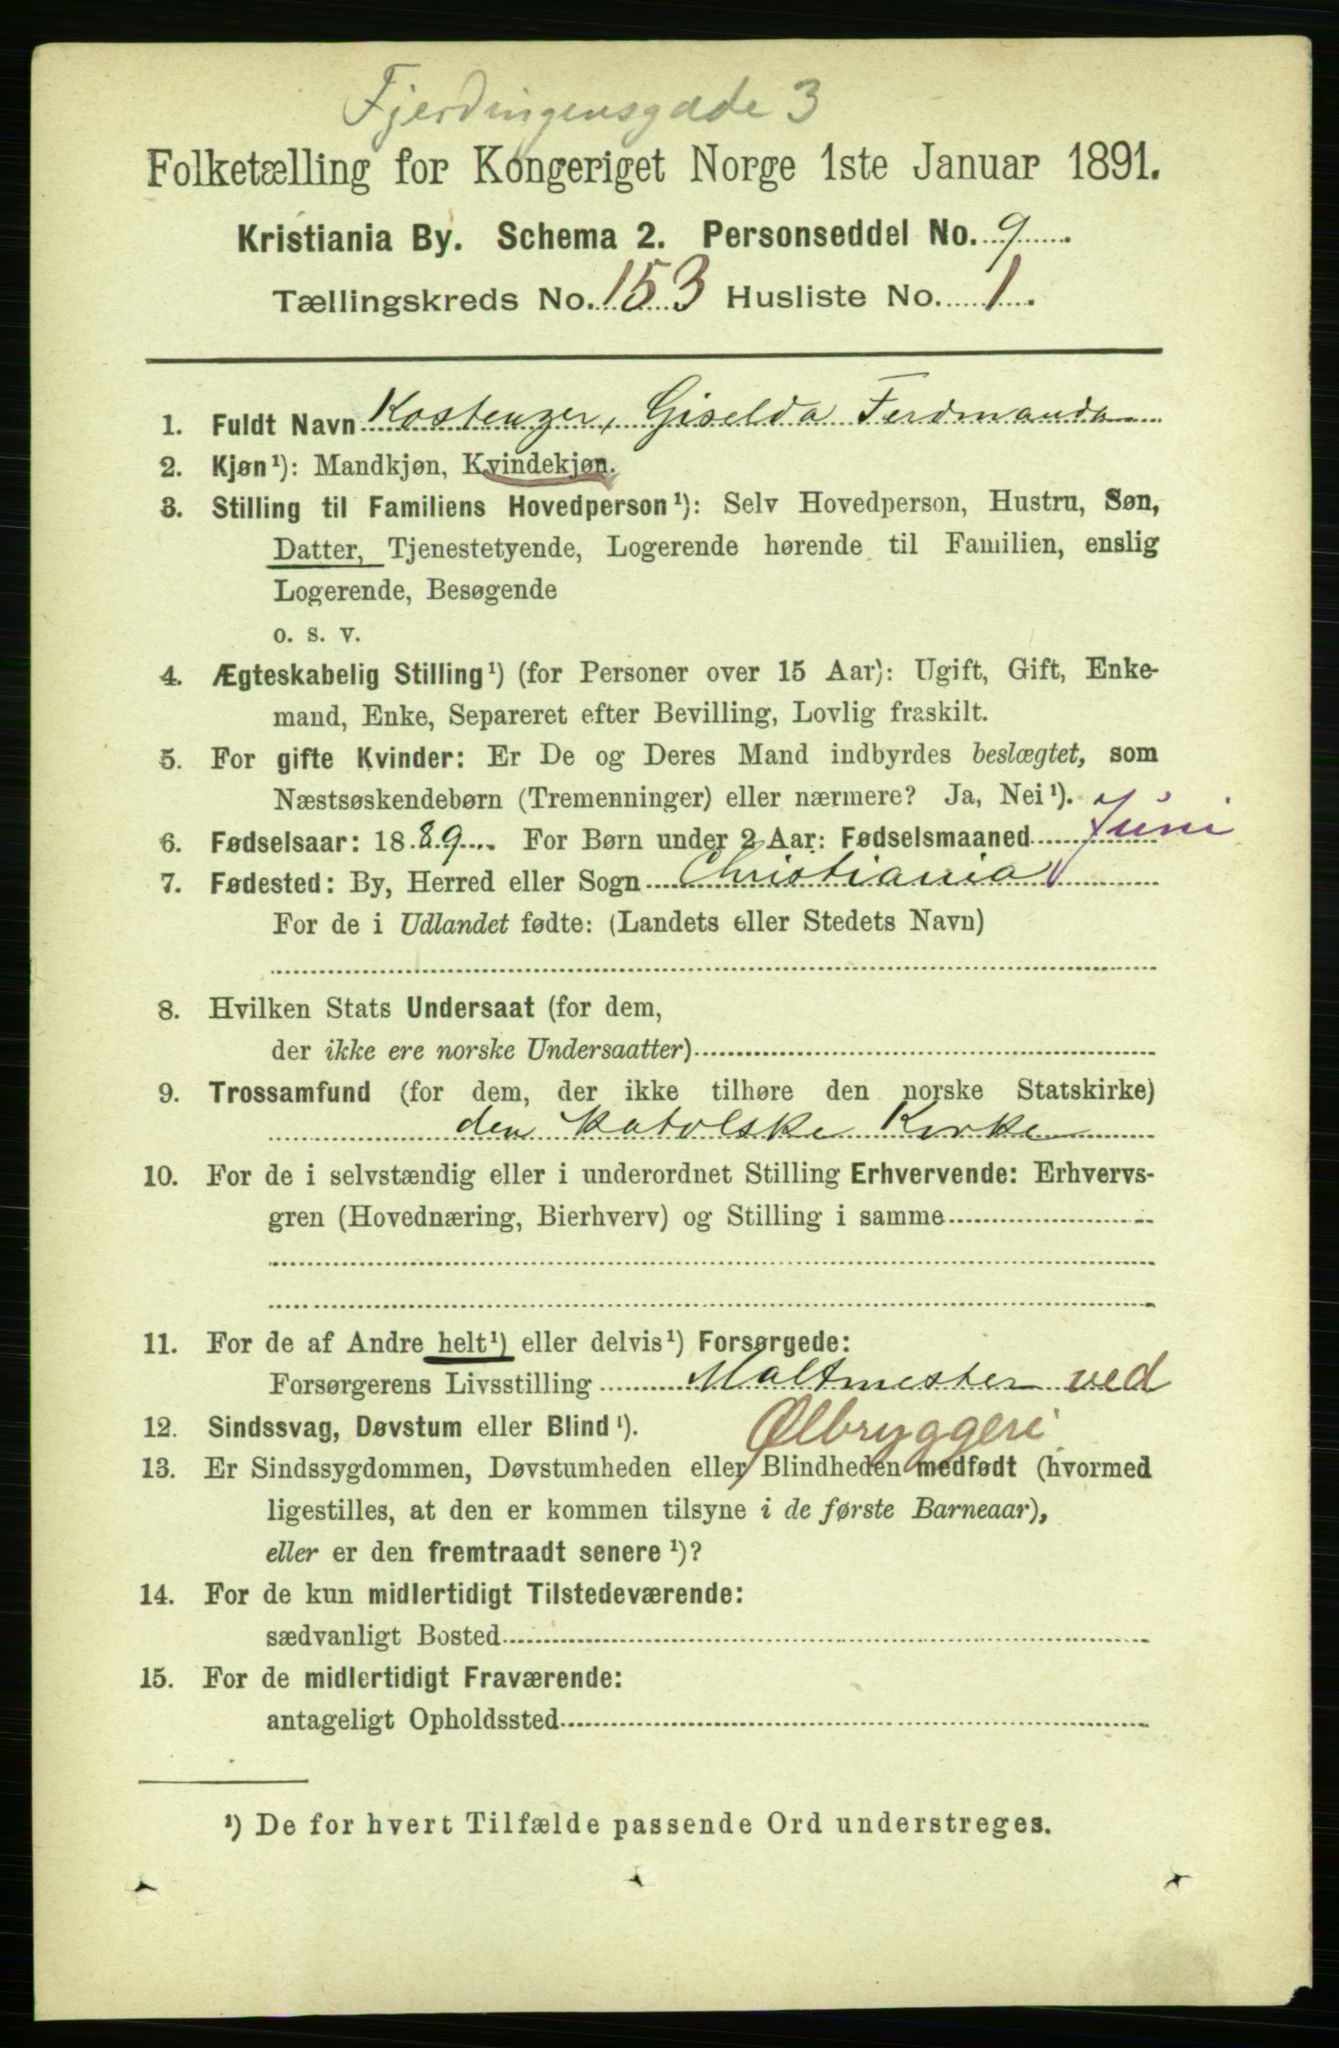 Fjerdingensgade 3
Folketælling for Kongeriget Norge 1ste Januar 1891.
Kristiania By. Schema 2. Personseddel No. 9
Tællingskreds No. 153 Husliste No. 1.
1. Fuldt Navn Kostenzer, Giselda Ferdinanda
2. Kjøn¹): Mandkjøn, Kvindekjøn.
3. Stilling til Familiens Hovedperson¹): Selv Hovedperson, Hustru, Søn,
Datter, Tjenestetyende, Logerende hørende til Familien, enslig
Logerende, Besøgende
o. s. v.
4. Ægteskabelig Stilling¹) (for Personer over 15 Aar): Ugift, Gift, Enke-
mand, Enke, Separeret efter Bevilling, Lovlig fraskilt.
5. For gifte Kvinder: Er De og Deres Mand indbyrdes beslægtet, som
Næstsøskendebørn (Tremenninger) eller nærmere? Ja, Nei¹).
6. Fødselsaar: 1889. For Børn under 2 Aar: Fødselsmaaned Juni
7. Fødested: By, Herred eller Sogn Christiania
For de i Udlandet fødte: (Landets eller Stedets Navn)
8. Hvilken Stats Undersaat (for dem,
der ikke ere norske Undersaatter)
9. Trossamfund (for dem, der ikke tilhøre den norske Statskirke)
den katolske Kirke
10. For de i selvstændig eller i underordnet Stilling Erhvervende: Erhvervs-
gren (Hovednæring, Bierhverv) og Stilling i samme
11. For de af Andre helt¹) eller delvis¹) Forsørgede:
Forsørgerens Livsstilling Maltmester ved
Ølbryggeri
12. Sindssvag, Døvstum eller Blind¹).
13. Er Sindssygdommen, Døvstumheden eller Blindheden medfødt (hvormed
ligestilles, at den er kommen tilsyne i de første Barneaar),
eller er den fremtraadt senere¹)?
14. For de kun midlertidigt Tilstedeværende:
sædvanligt Bosted
15. For de midlertidigt Fraværende:
antageligt Opholdssted
¹) De for hvert Tilfælde passende Ord understreges.